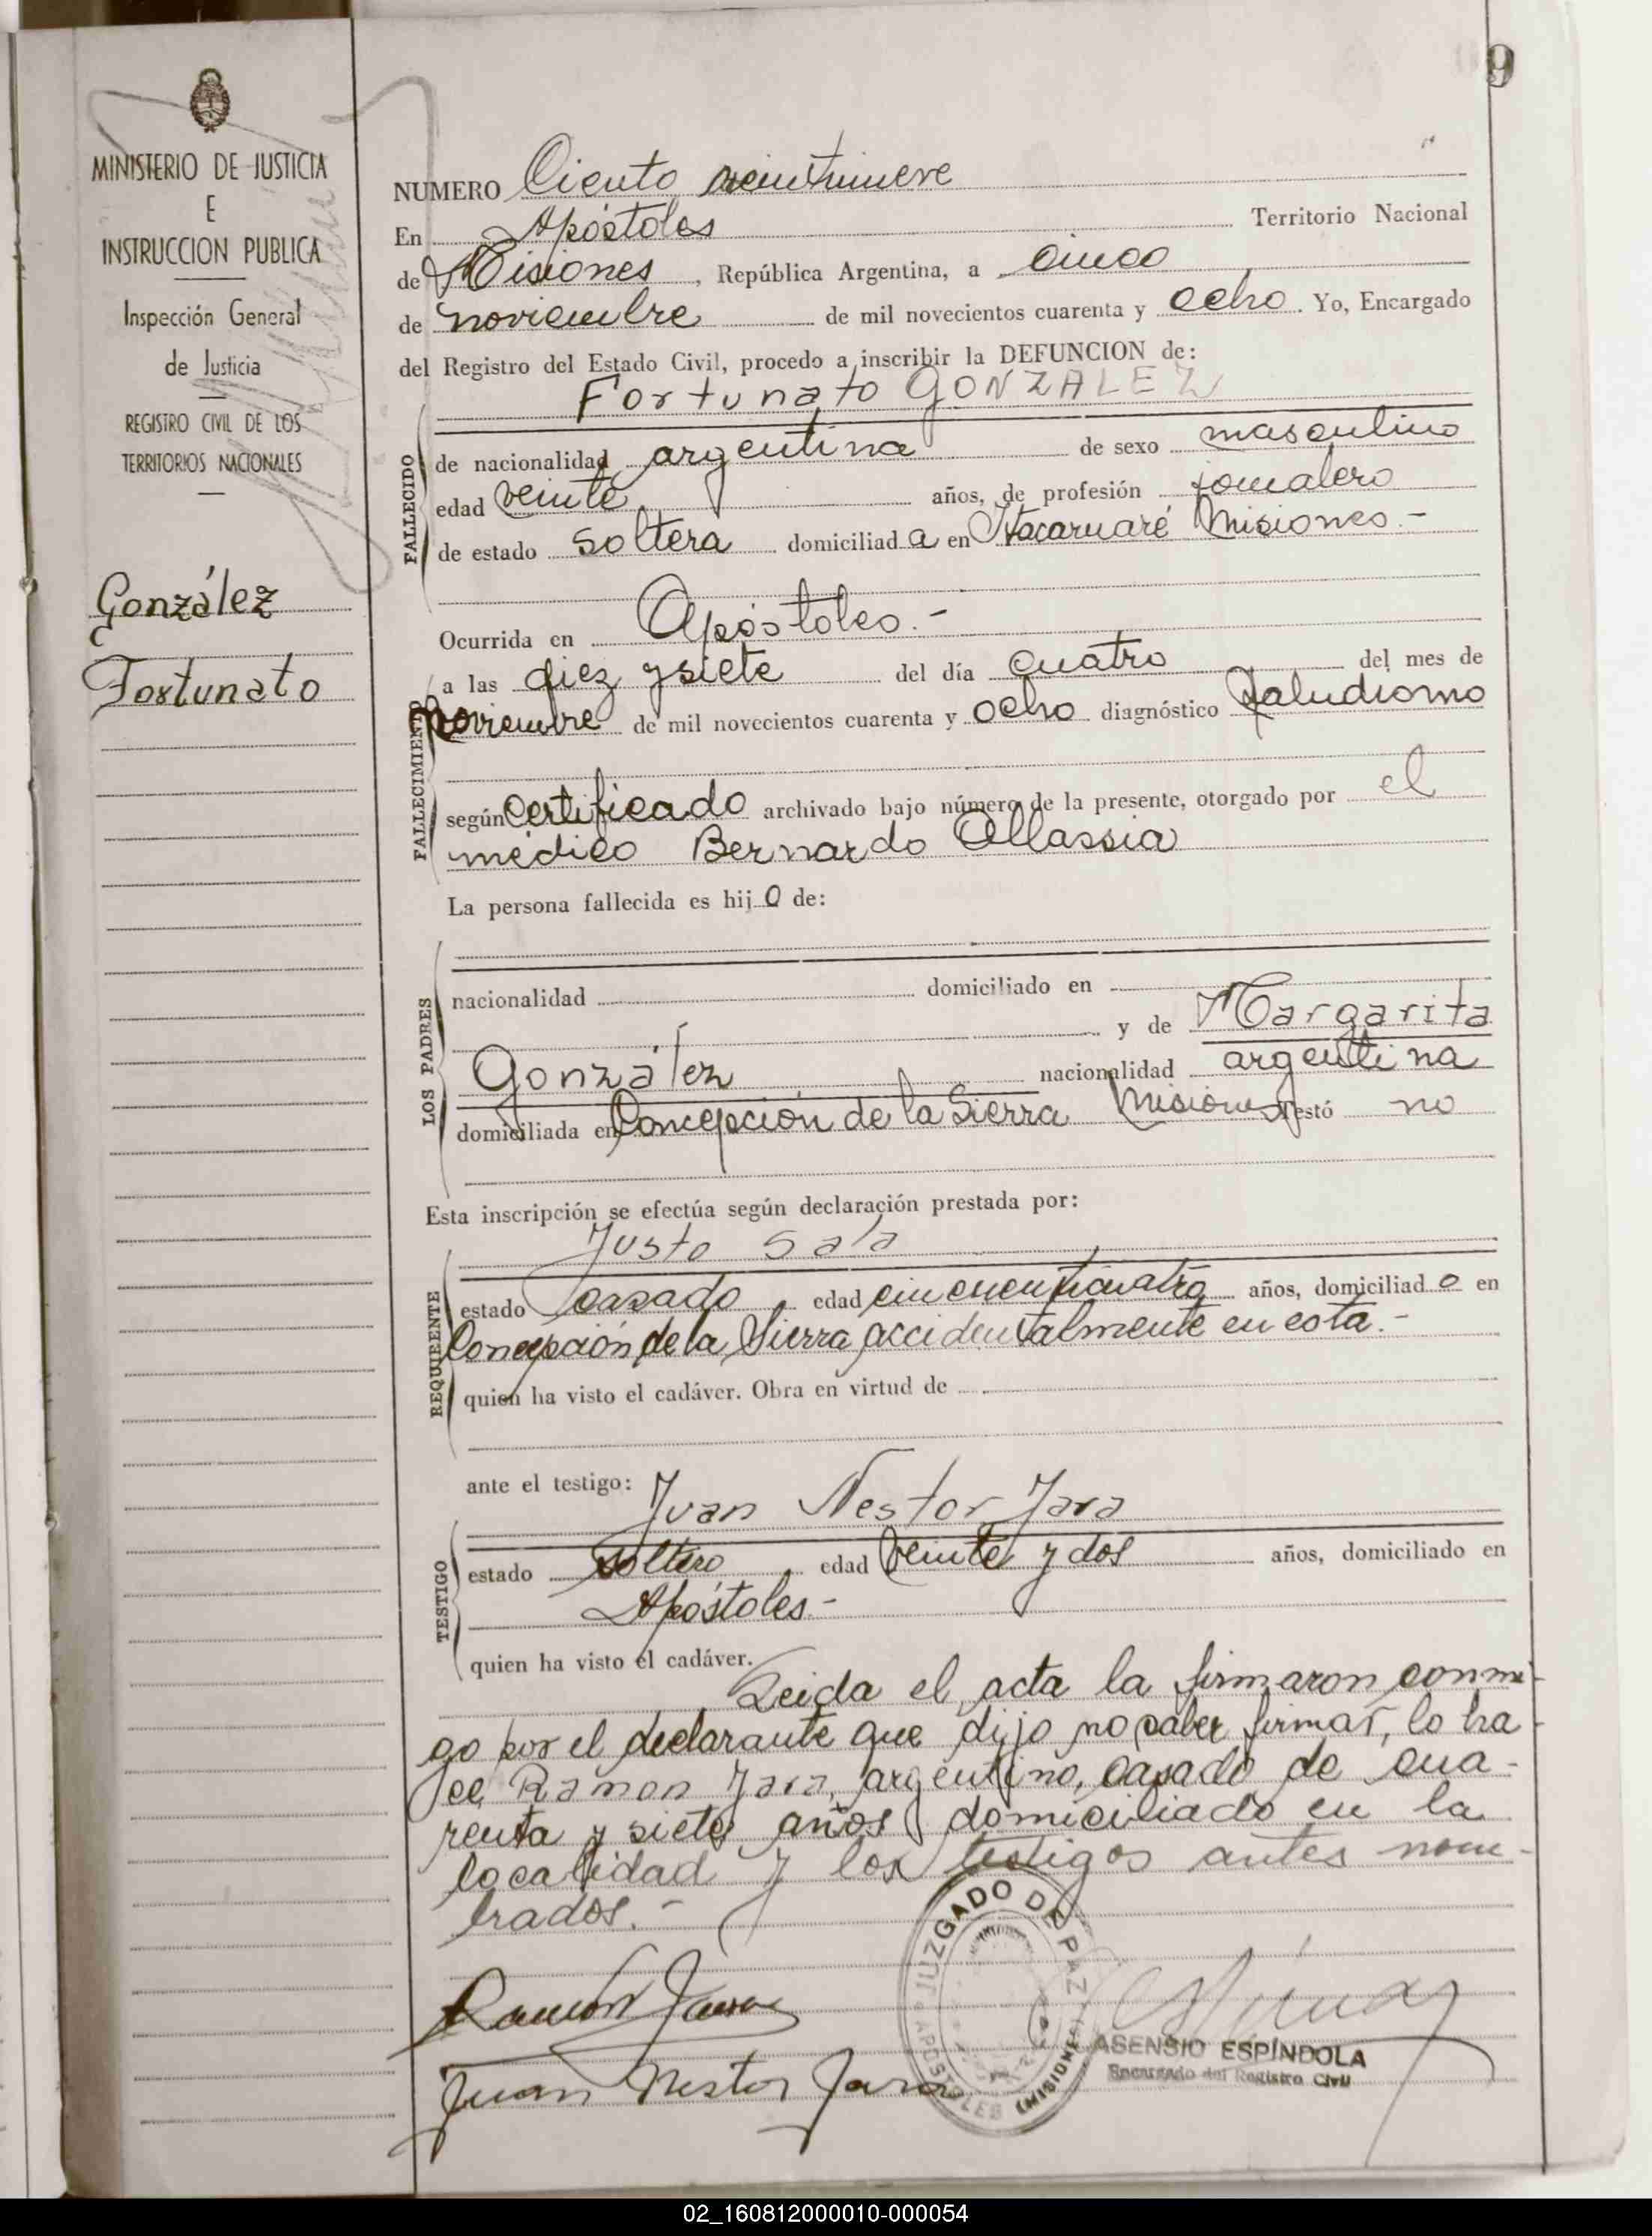 9
MINISTERIO DE JUSTICIA
E
INSTRUCCION PUBLICA
Inspección General
de Justicia
REGISTRO CIVIL DE LOS
TERRITORIOS NACIONALES
González
Fortunato
NUMERO Ciento veintinueve
En Apóstoles Territorio Nacional
de Misiones, República Argentina, a cinco
de noviembre de mil novecientos cuarenta y ocho. Yo, Encargado
del Registro del Estado Civil, procedo a inscribir la DEFUNCION de:
Fortunato GONZALEZ
FALLECIDO
de nacionalidad argentina de sexo masculino
edad veinte años, de profesión jornalero
de estado soltera domiciliada en Itacaruaré Misiones.-
Ocurrida en Apóstoles.-
FALLECIMIENTO
a las diez y siete del día cuatro del mes de
noviembre de mil novecientos cuarenta y ocho diagnóstico Paludismo
según certificado archivado bajo número de la presente, otorgado por el
médico Bernardo Ollassia
La persona fallecida es hijo de:
LOS PADRES
nacionalidad domiciliado en
y de Margarita
González nacionalidad argentina
domiciliada en Concepción de la Sierra Misiones Testó no
Esta inscripción se efectúa según declaración prestada por:
Justo Sala
REQUIRENTE
estado casado edad cincuenticuatro años, domiciliado en
Concepción de la Sierra accidentalmente en esta.-
quien ha visto el cadáver. Obra en virtud de
ante el testigo: Juan Nestor Jara
TESTIGO
estado soltero edad veinte y dos años, domiciliado en
Apóstoles-
quien ha visto el cadáver.
Leida el acta la firmaron conmi-
go por el declarante que dijo no saber firmar, lo ha-
ce Ramon Jara, argentino, casado de cua-
renta y siete años domiciliado en la
localidad y los testigos antes nom-
brados.-
Ramón Jara
Juan Nestor Jara
JUZGADO DE PAZ
APOSTOLES (MISIONES)
ASENSIO ESPÍNDOLA
Encargado del Registro Civil
02_160812000010-000054